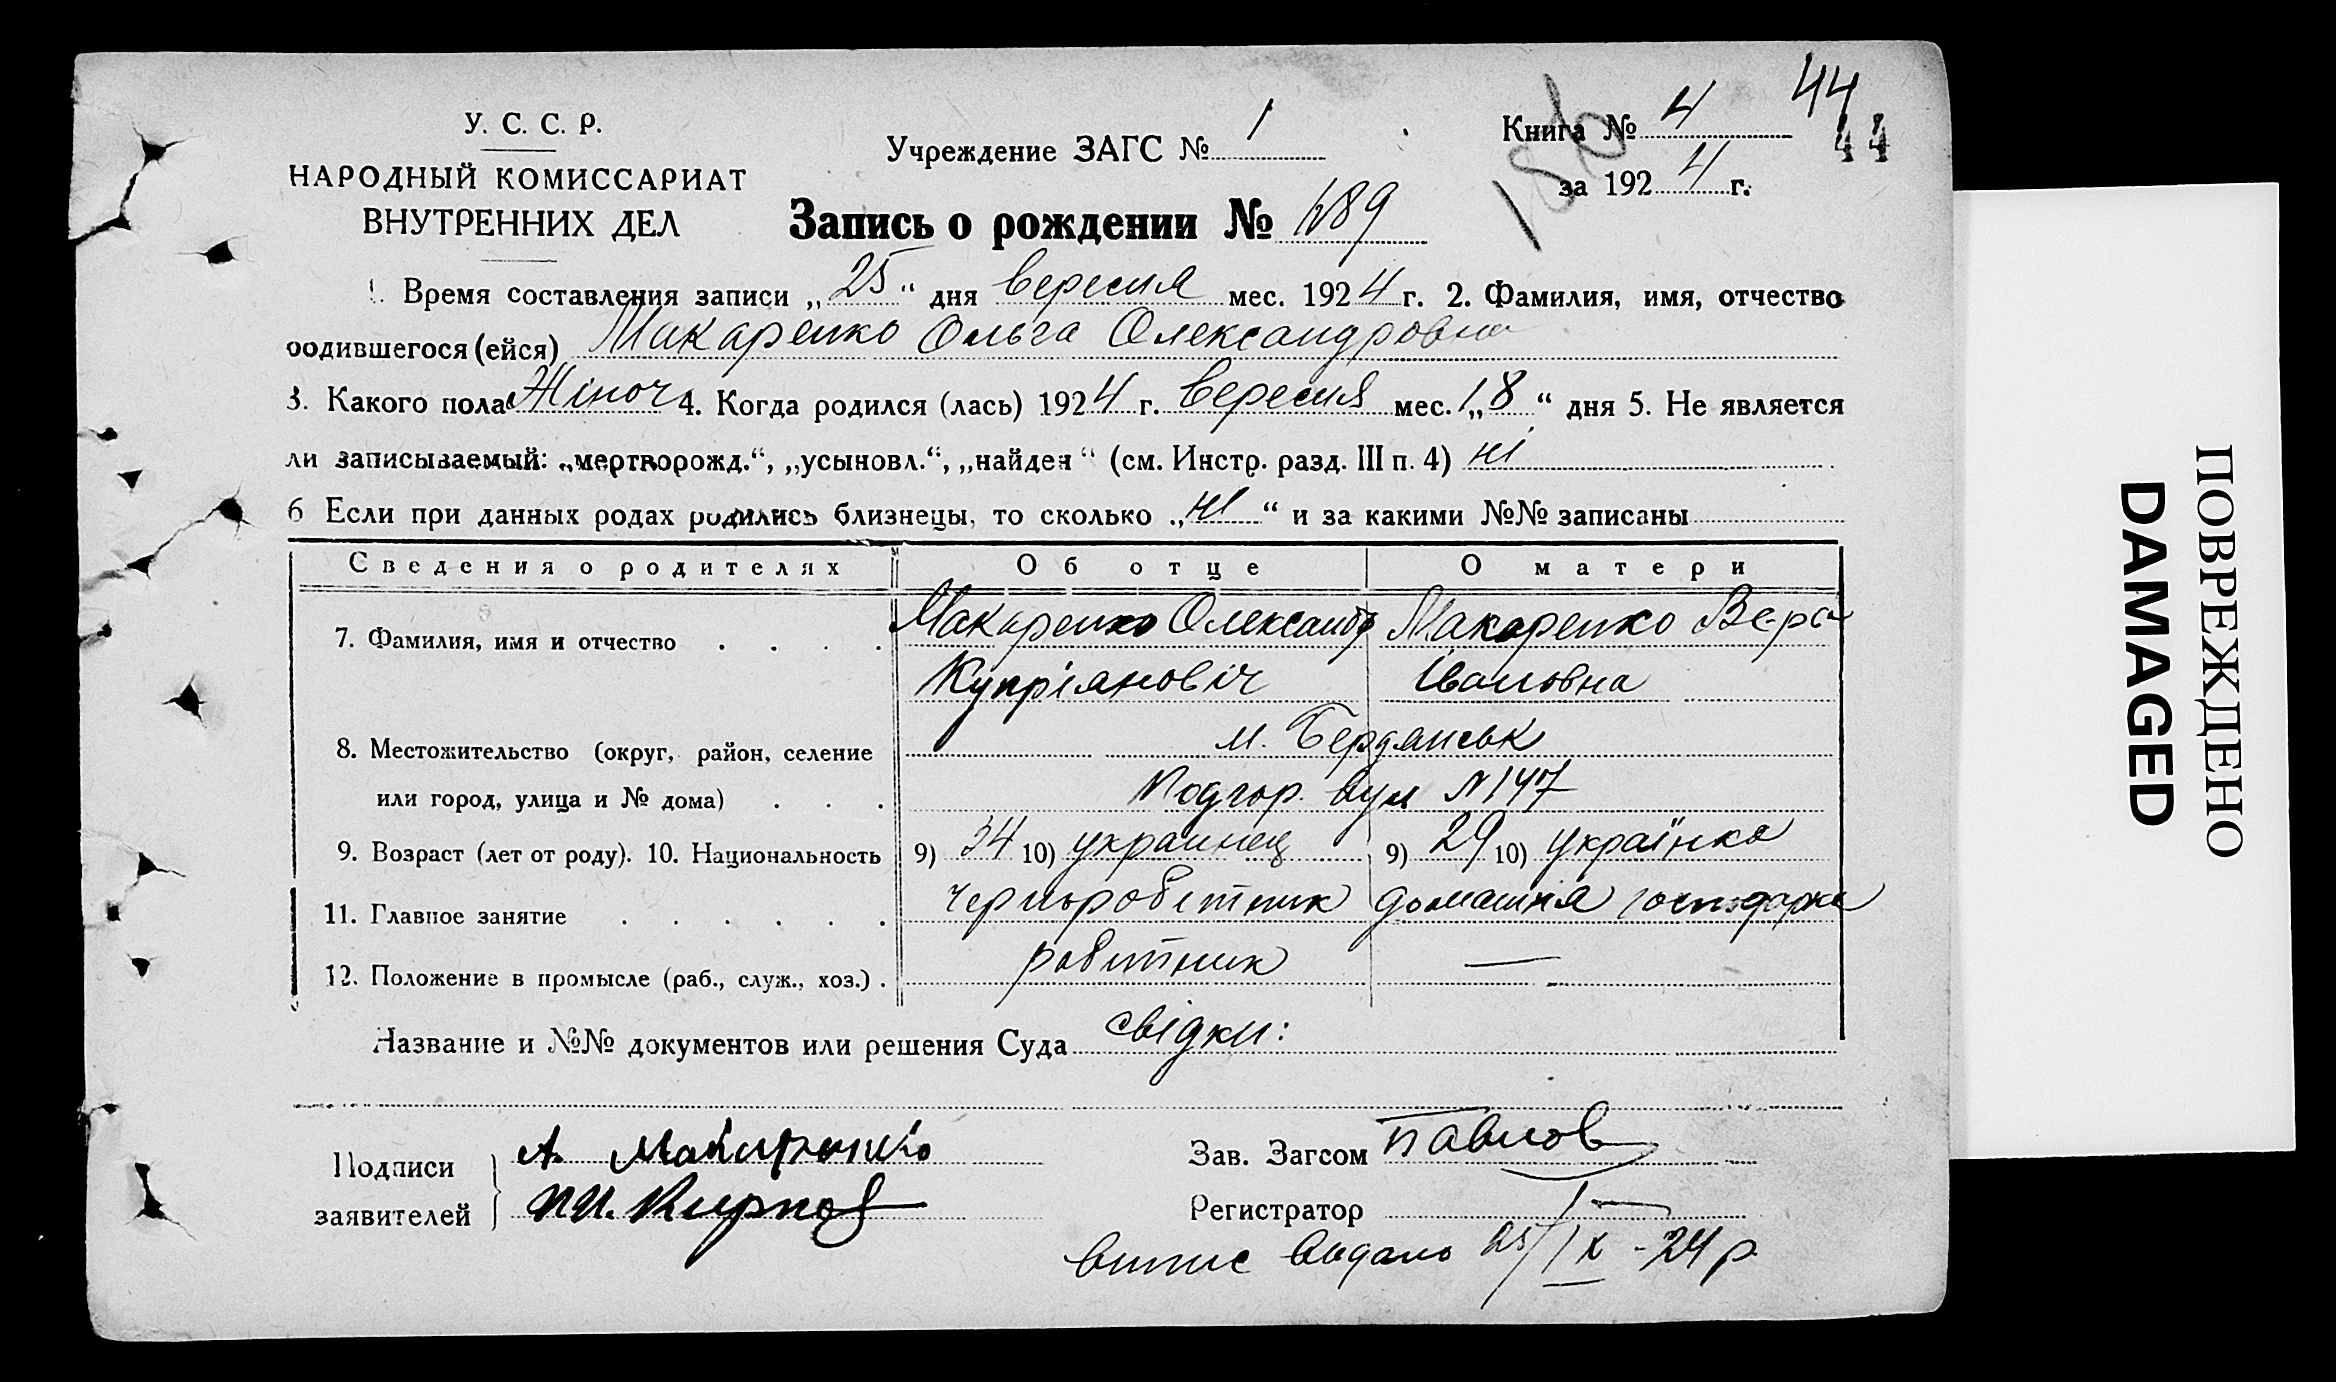 У. С. С. Р.
НАРОДНЫЙ КОМИССАРИАТ
ВНУТРЕННИХ ДЕЛ
Учреждение ЗАГС № 1
Книга № 4
44
44
за 1924 г.
Запись о рождении № 489
1. Время составления записи „25“ дня вересня мес. 1924 г. 2. Фамилия, имя, отчество
родившегося (ейся) Макаренко Ольга Олександровна
3. Какого пола Жіноч 4. Когда родился (лась) 1924 г. вересня мес. „18“ дня 5. Не является
ли записываемый: „мертворожд.“, „усыновл.“, „найден“ (см. Инстр. разд. III п. 4) ні
6 Если при данных родах родились близнецы, то сколько „ні“ и за какими №№ записаны
Сведения о родителях Об отце О матери
7. Фамилия, имя и отчество . . . . Макаренко Олександр Макаренко Вера
Купріяновіч Івановна
8. Местожительство (округ, район, селение м. Бердянськ
или город, улица и № дома) . . . Подгор. вул N 147
9. Возраст (лет от роду). 10. Национальность 9) 34 10) украинец 9) 29 10) українка
11. Главное занятие . . . . . . черноробітник домашня господарка
12. Положение в промысле (раб., служ., хоз.) . робітник —
Название и №№ документов или решения Суда свідки:
Подписи А. Макаренко Зав. Загсом Павлов
заявителей Регистратор
витис видано 25/IX - 24 р
ПОВРЕЖДЕНО
DAMAGED